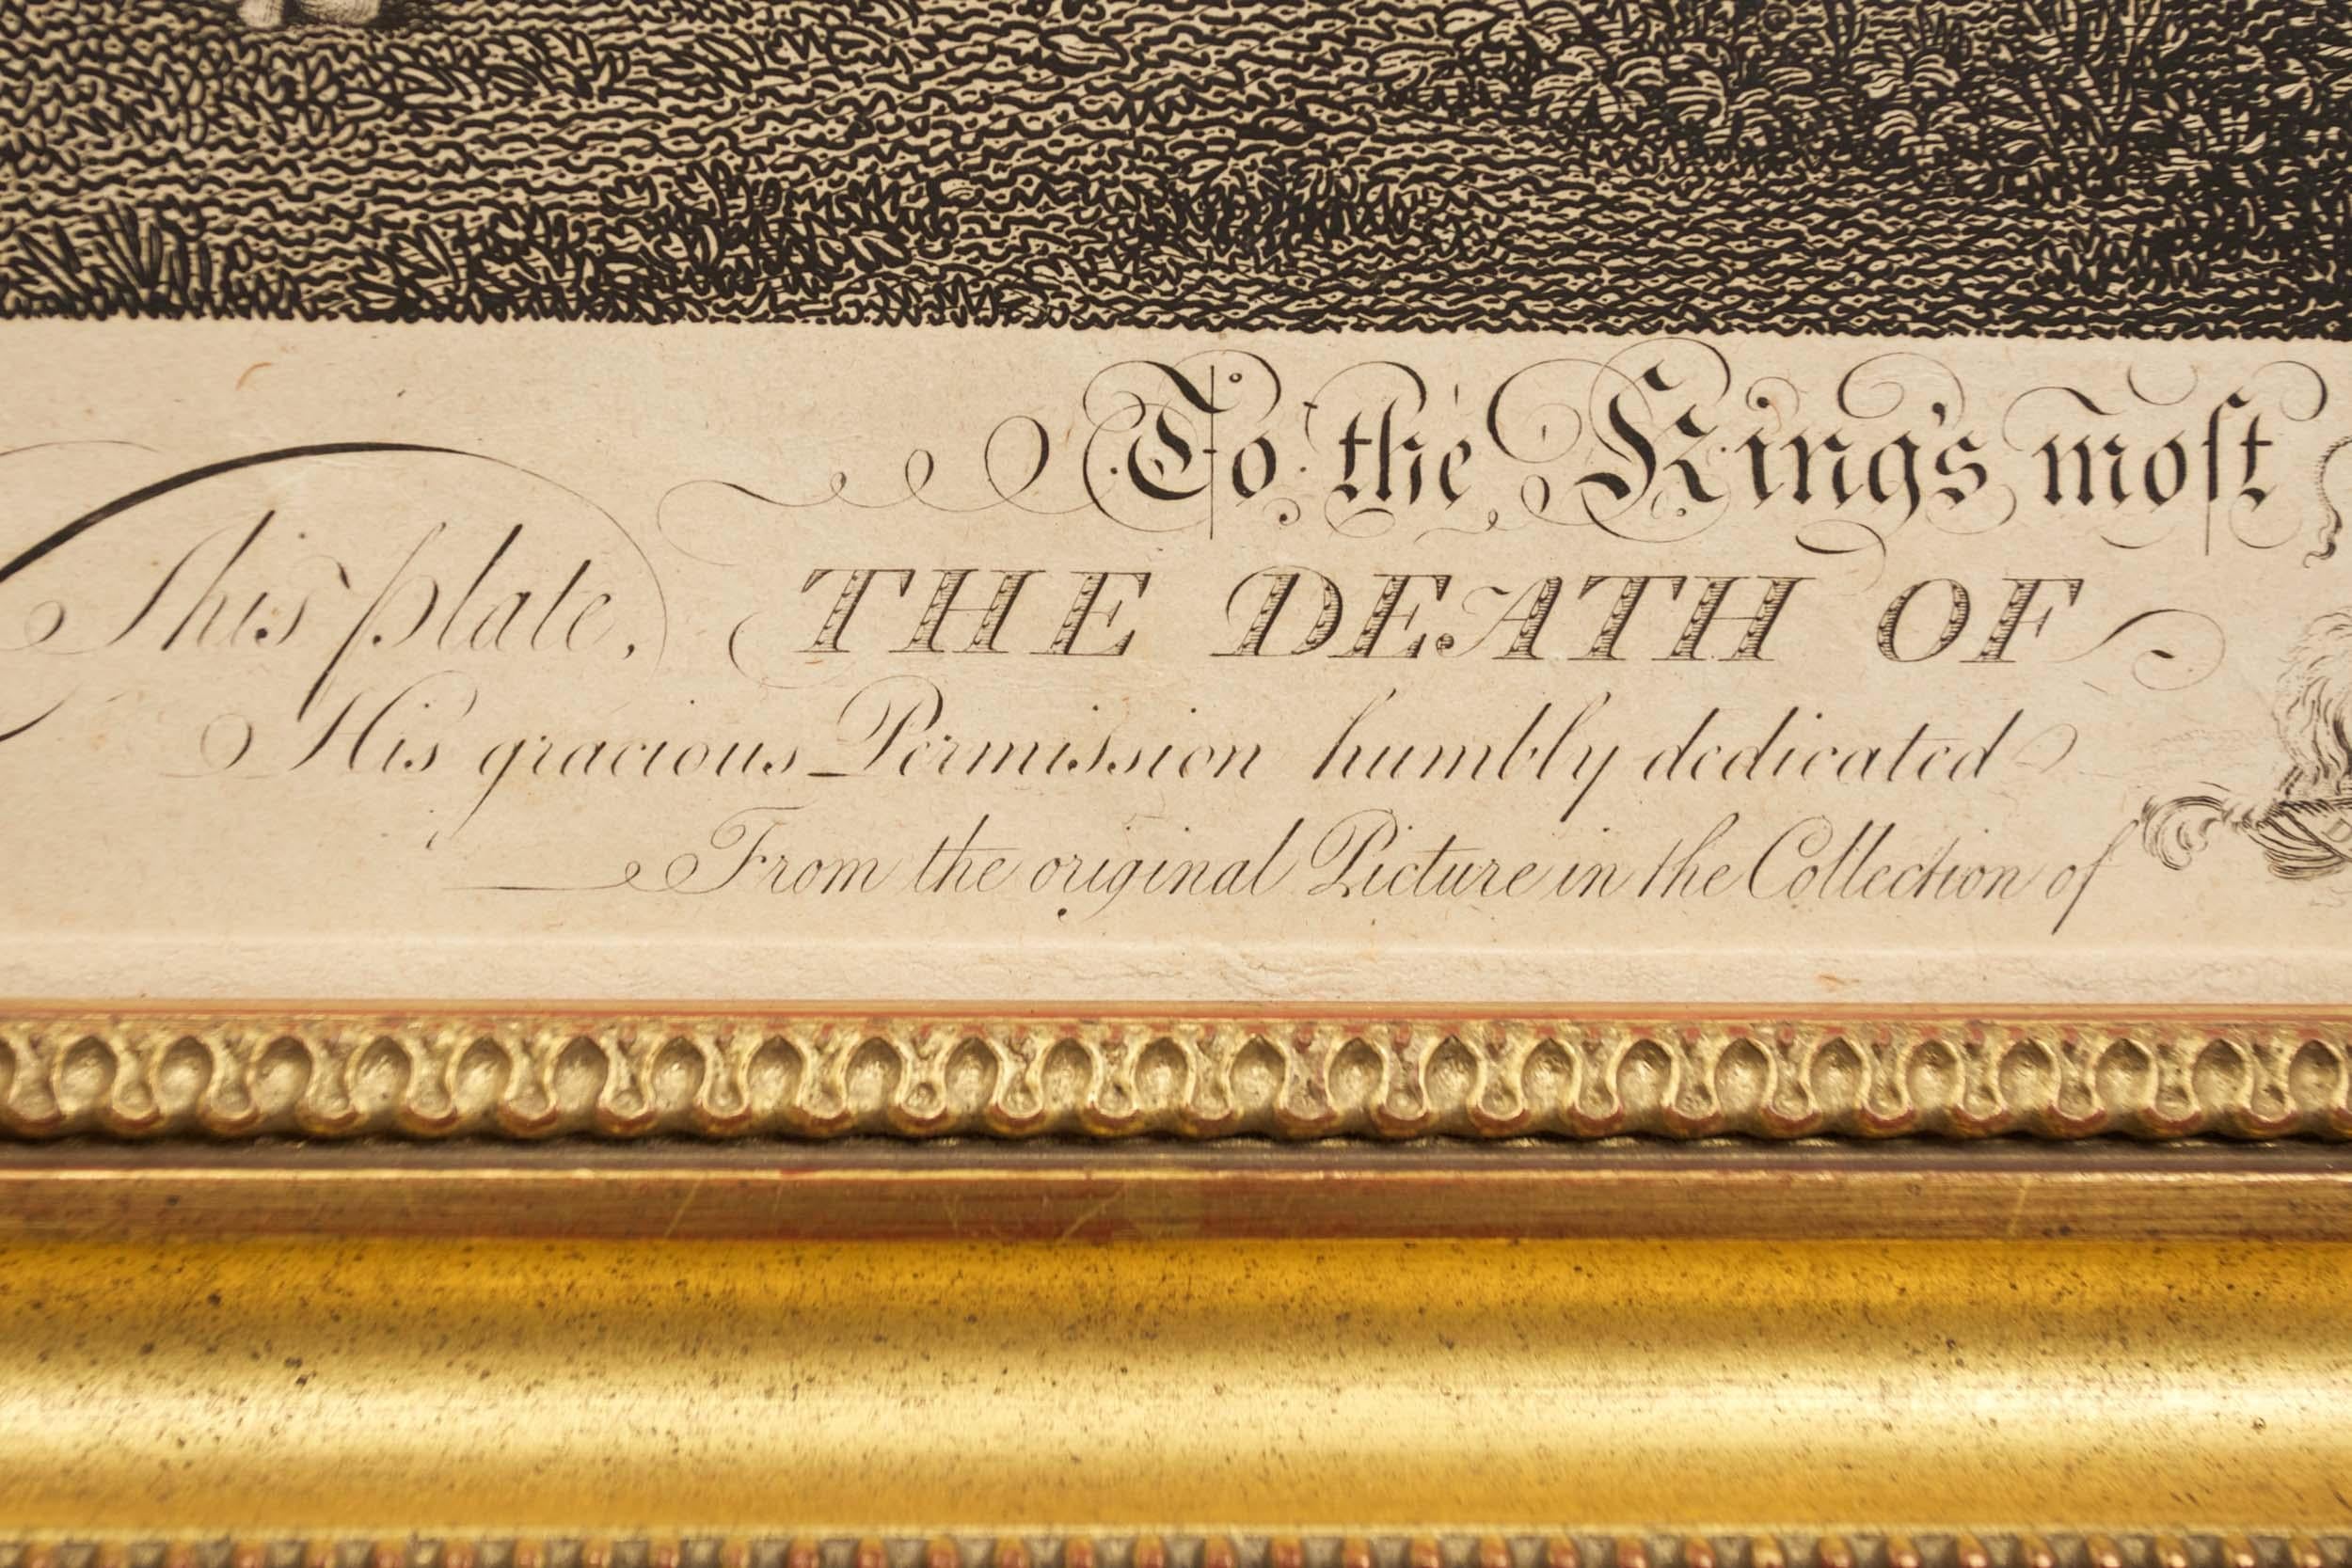 To the King's moſt
This plate, THE DEATH OF
His gracious Permission humbly dedicated
From the original Picture in the Collection of